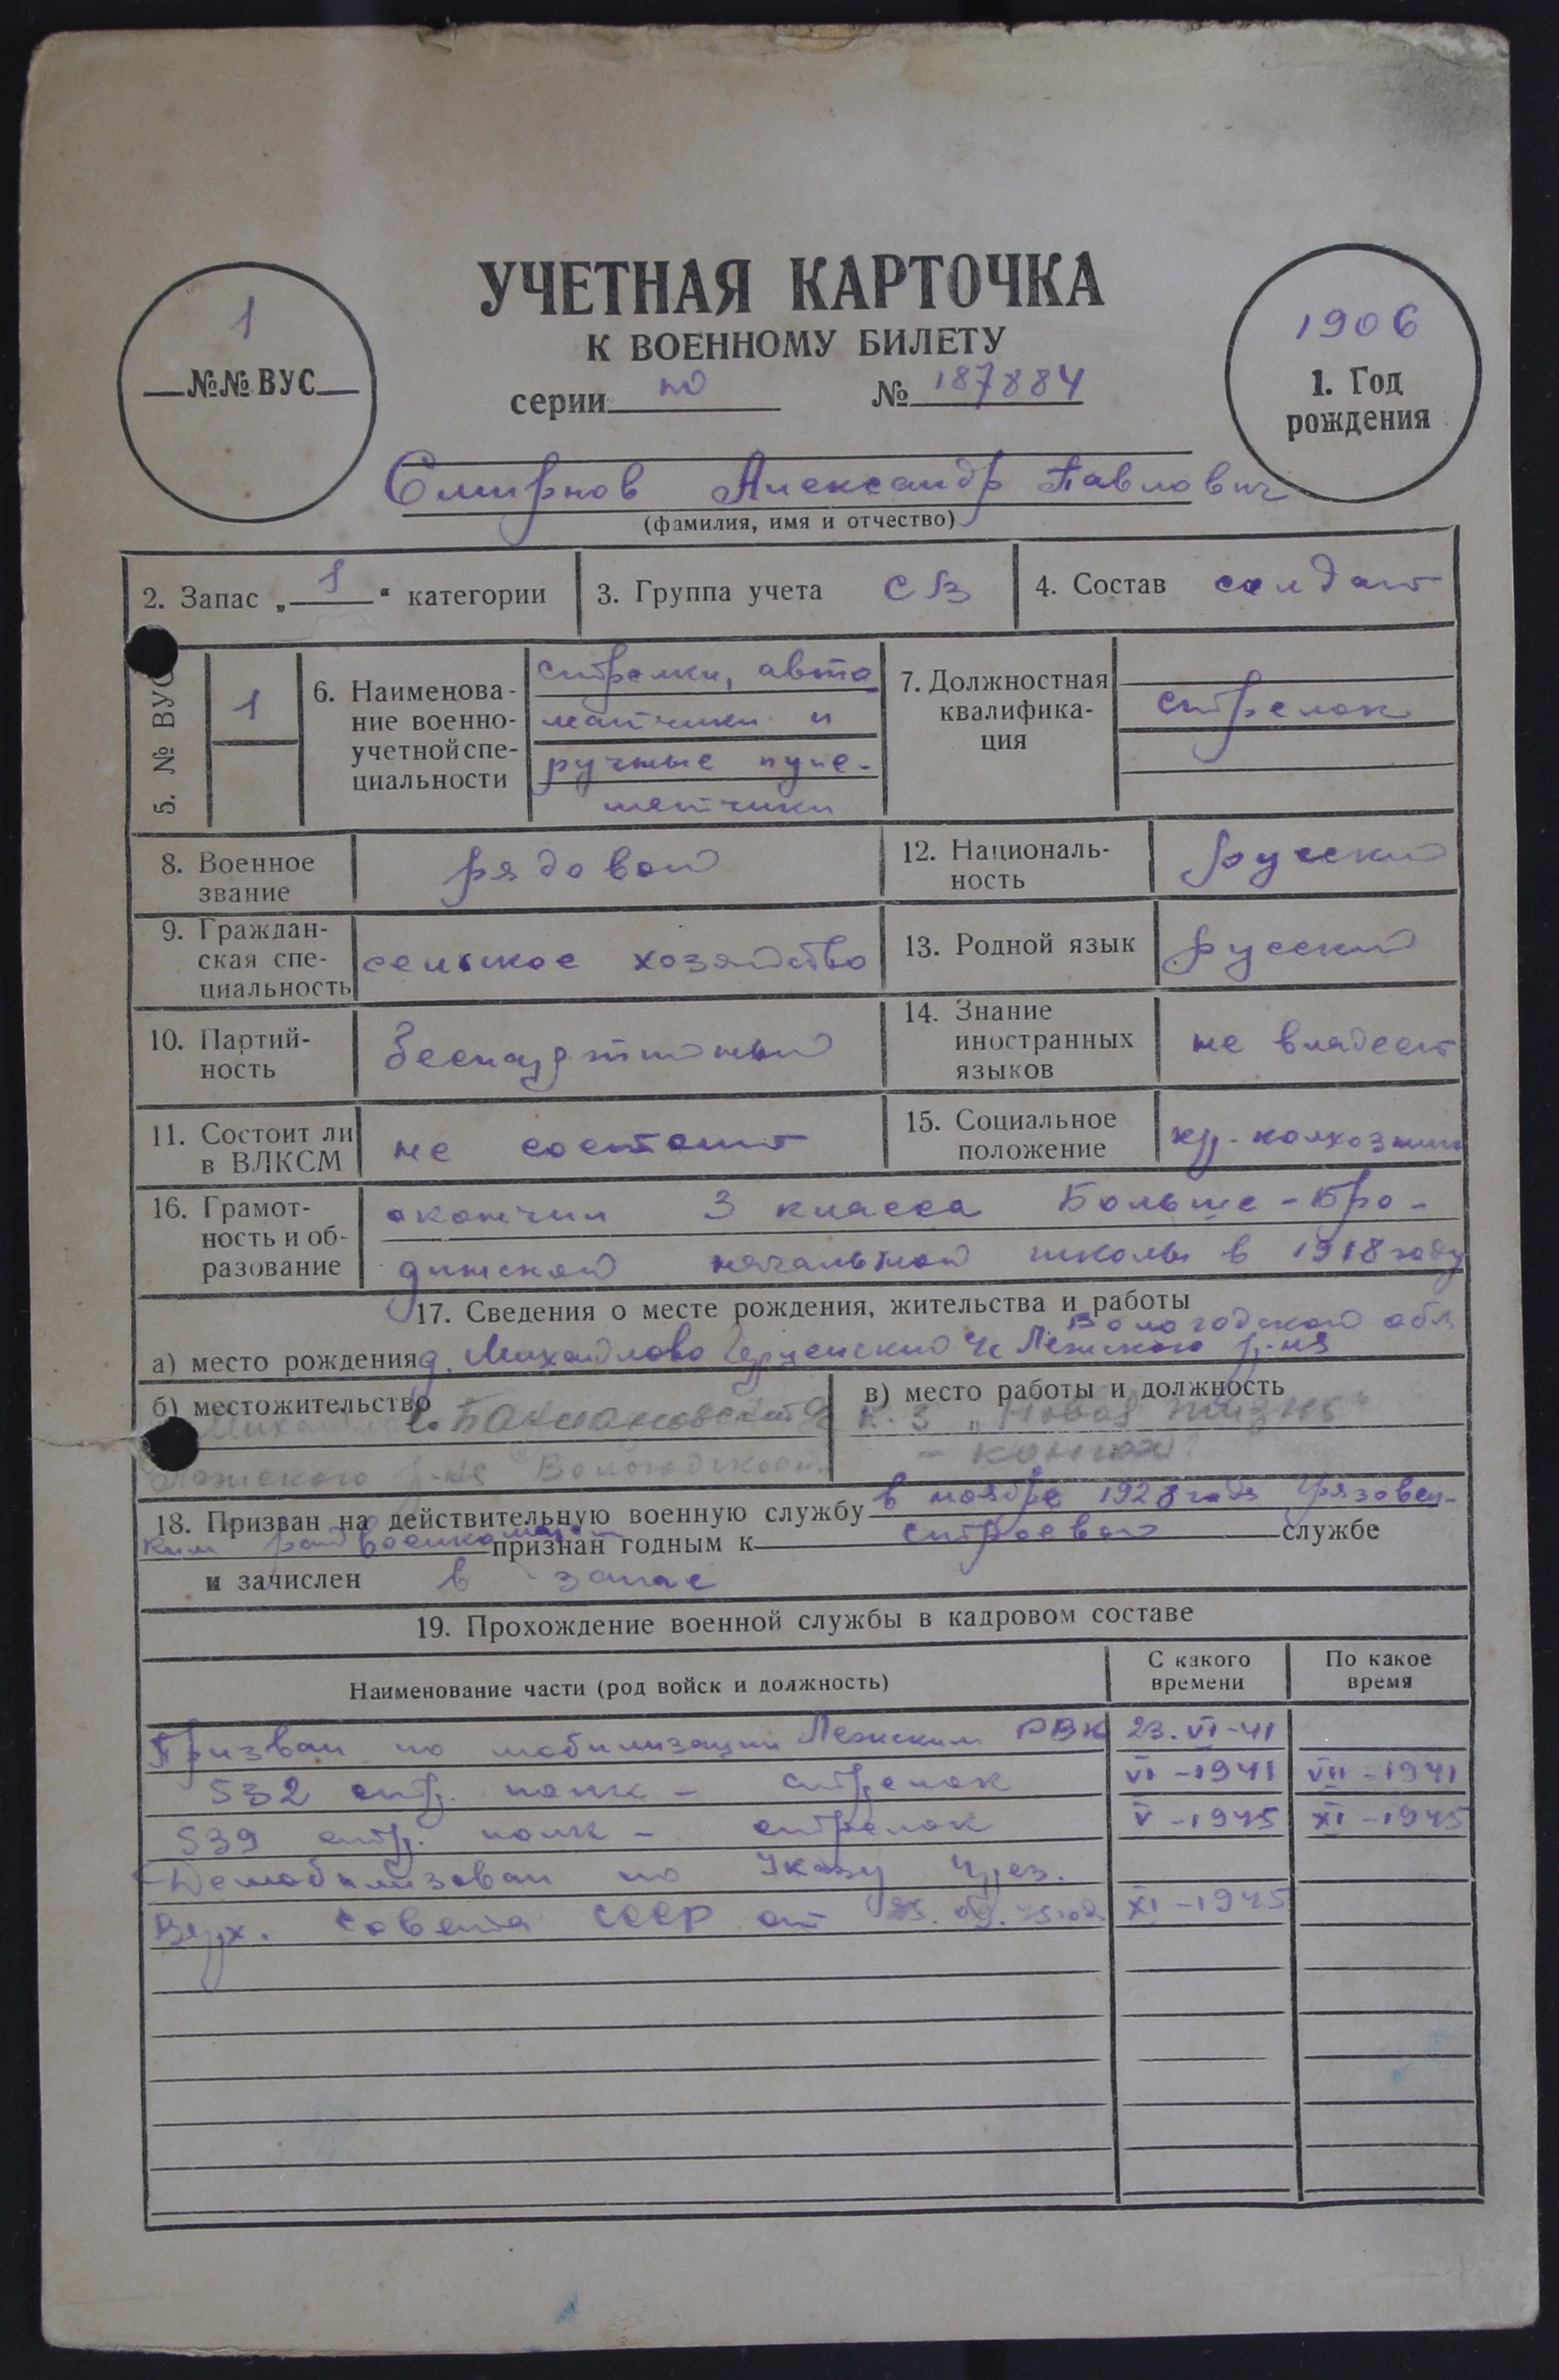 УЧЕТНАЯ КАРТОЧКА
К ВОЕННОМУ БИЛЕТУ
серии по № 187884
1
№№ ВУС
1906
1. Год
рождения
Смирнов Александр Павлович
(фамилия, имя и отчество)
2. Запас „1“ категории
3. Группа учета СВ
4. Состав солдат
5. № ВУС
1
6. Наименова-
ние военно-
учетной спе-
циальности
стрелки, авто
матчики и
ручные пуле-
метчики
7. Должностная
квалифика-
ция
стрелок
8. Военное
звание
рядовой
12. Националь-
ность
русский
9. Граждан-
ская спе-
циальность
сельское хозяйство
13. Родной язык
русский
10. Партий-
ность
беспартийный
14. Знание
иностранных
языков
не владеет
11. Состоит ли
в ВЛКСМ
не состоит
15. Социальное
положение
кр-колхозник
16. Грамот-
ность и об-
разование
окончил 3 класса Больше-
начальной школы в 1918 году
17. Сведения о месте рождения, жительства и работы
Вологодской обл
а) место рождения д. Михайлово Лежского р-на
б) местожительство
Лежского р-на Вологодской
в) место работы и должность
к-з „Новая жизнь“
18. Призван на действительную военную службу в ноябре 1928 года Грязовец-
ким райвоенкоматом признан годным к строевой службе
и зачислен в запас
19. Прохождение военной службы в кадровом составе
Наименование части (род войск и должность)
С какого
времени
По какое
время
Призван по мобилизации Лежским РВК 23.VI-41
532 стр. полк - стрелок VI-1941 VII-1941
539 стр. полк - стрелок V-1945 XI-1945
Демобилизован по Указу През.
Верх. Совета СССР от 25.09.45 год. XI-1945